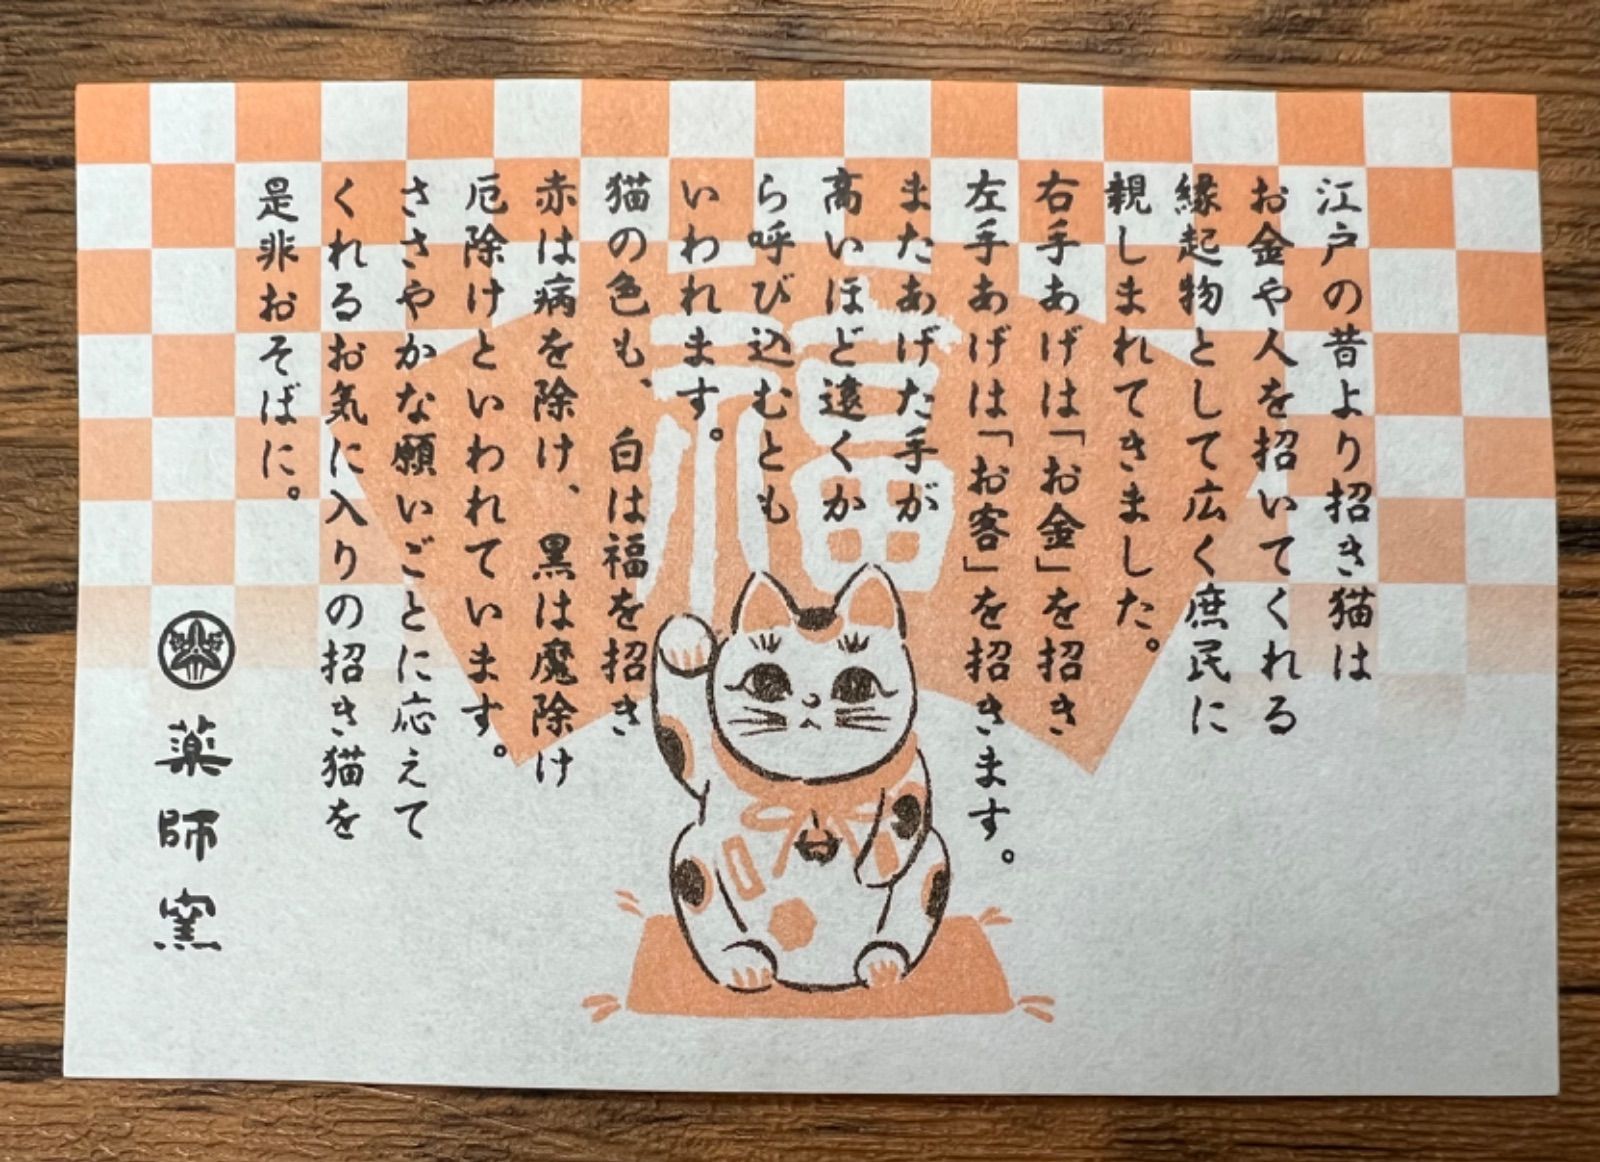 江戸の昔より招き猫は
お金や人を招いてくれる
縁起物として広く庶民に
親しまれてきました。
右手あげは「お金」を招き
左手あげは「お客」を招きます。
またあげた手が
高いほど遠くか
ら呼び込むとも
いわれます。
猫の色も、白は福を招き
赤は病を除け、黒は魔除け
厄除けといわれています。
ささやかな願いごとに応えて
くれるお気に入りの招き猫を
是非おそばに。
薬師窯
福